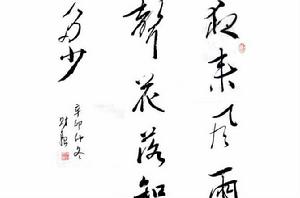 夜来风雨
声花落知
多少
辛卯仲冬